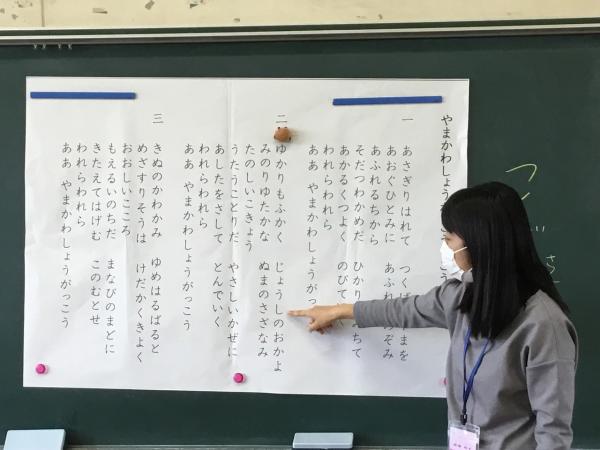 やまかわしょう
一
あさぎりはれて　つくば　まを
あおぐひとみに　あふれ　ぞみ
あふれるちから
そだつわかめだ　ひかり　みちて
あかるくつよく　のびて
われらわれら
ああ　やまかわしょうがっ
二
ゆかりもふかく　じょうしのおかよ
みのりゆたかな　ぬまのさざなみ
たのしいこきょう
うたうことりだ　やさしいかぜに
あしたをさして　とんでいく
われらわれら
ああ　やまかわしょうがっこう
三
きぬのかわかみ　ゆめはるばると
めざすりそうは　けだかくきよく
おおしいこころ
もえるいのちだ　まなびのまどに
きたえてはげむ　このむとせ
われらわれら
ああ　やまかわしょうがっこう